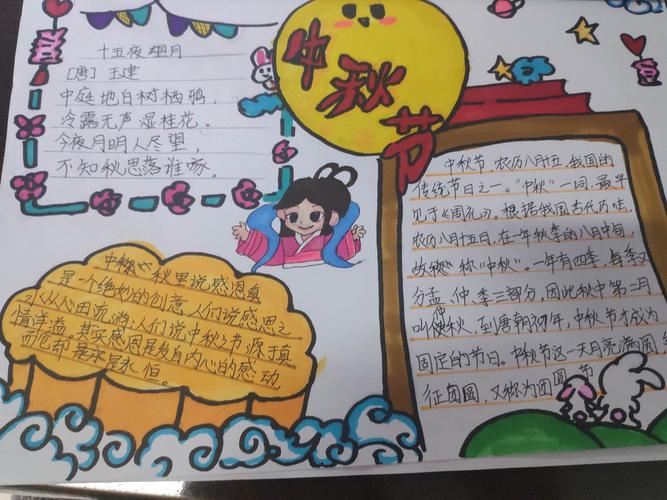 十五夜望月
[唐] 王建
中庭地白树栖鸦，
冷露无声湿桂花。
今夜月明人尽望，
不知秋思落谁
中秋节
中秋节，农历八月十五，我国的
传统节日之一。“中秋”一词，最早
见于《周礼》。根据我国古代历法，
农历八月十五日，在一年秋季的八月中间，
故 称“中秋”。一年有四季，每季又
分孟、仲、季三部分，因此秋中第二月
叫仲秋，到唐朝初年，中秋节才成为
固定的节日。中秋节这一天月亮满圆，
征团圆，又称为团圆节
中 秋里说感恩真
是一个绝妙的创意，人们说感恩之
心从心田流淌，人们说中秋 书源于真
情洋溢，其实感恩是发自内心的感动
而 却 是永恒。